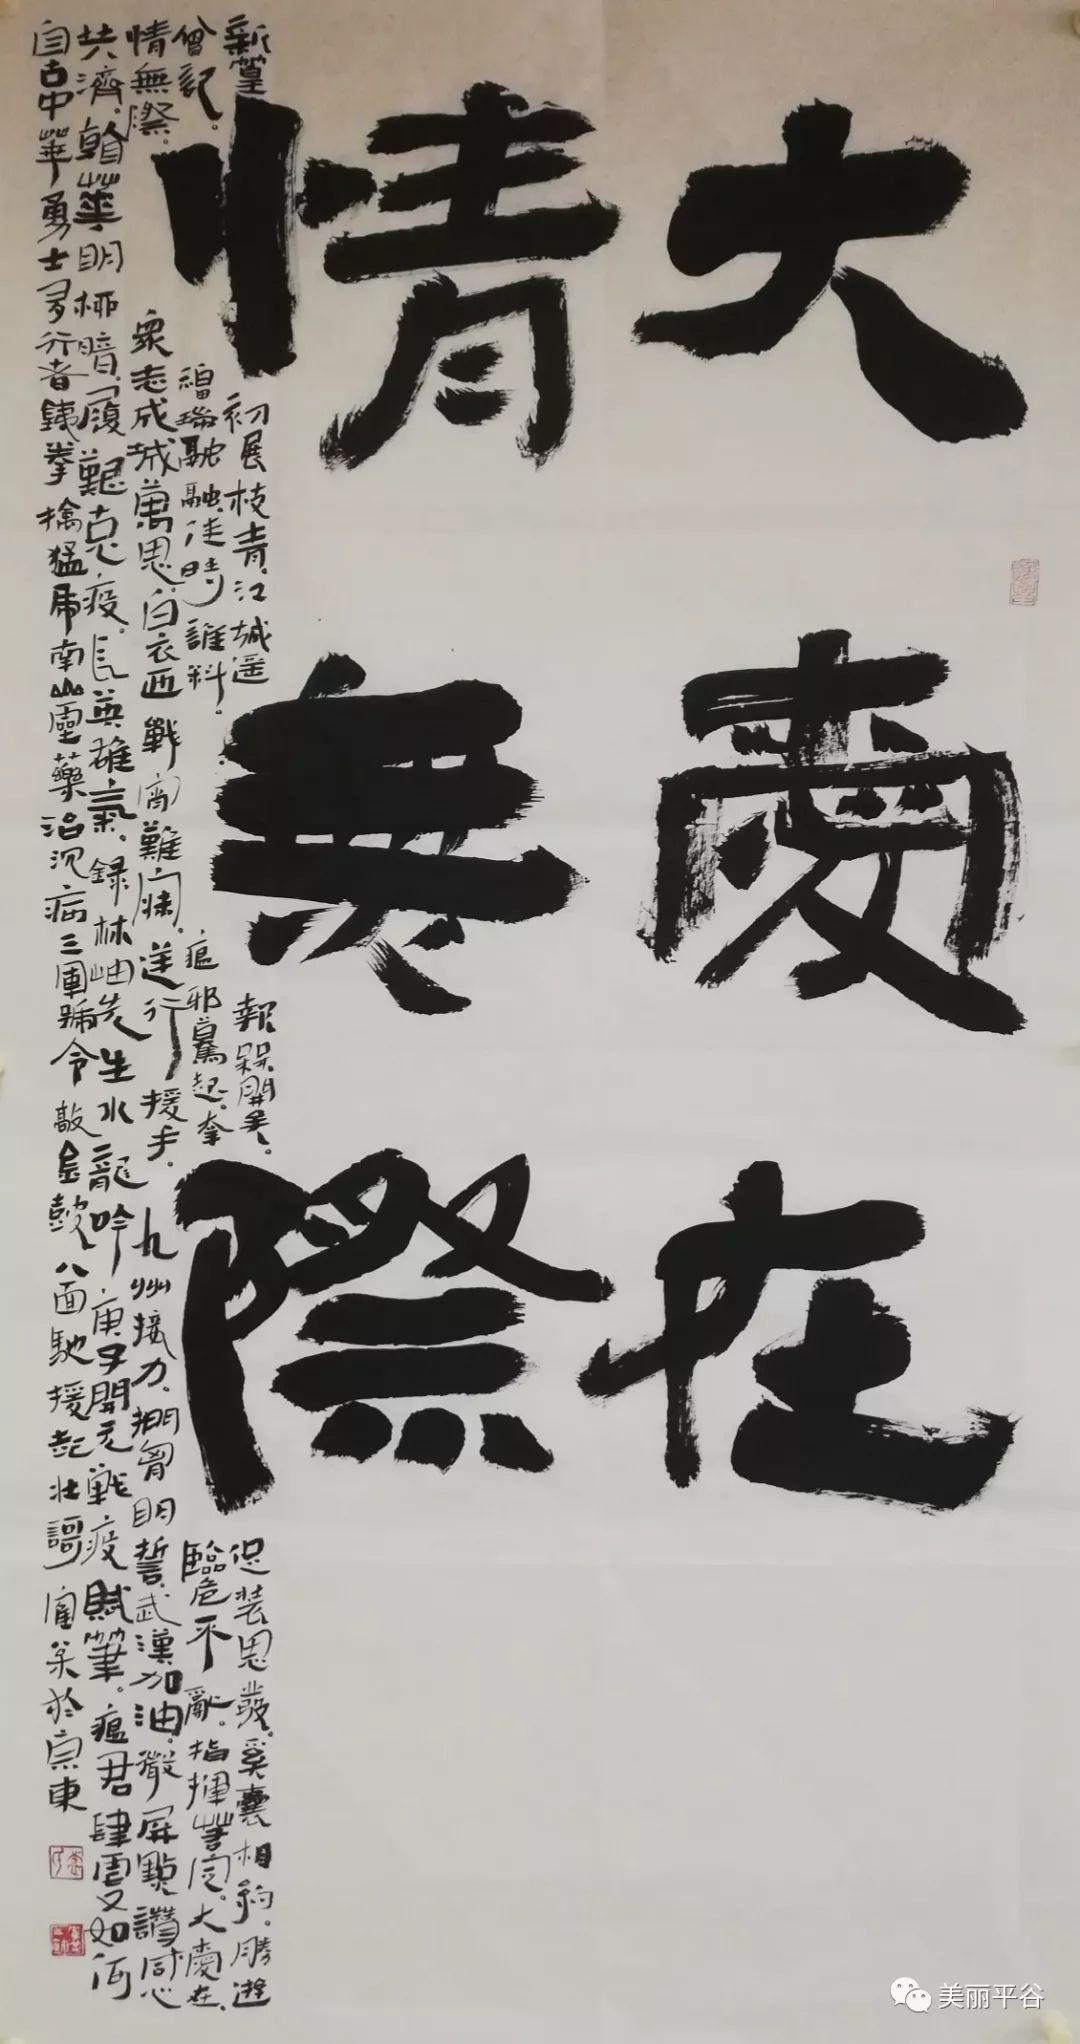 大愛在
情無際
新篁初展枝青。江城遥報槑開矣。促裝思發。奚囊相鉤。勝遊
曾記。福瑞融融佳時誰料。瘟邪驀起。臨危不亂。指揮若定。大愛在
情無際。衆志成城萬思白衣西戰難送行援手。九州接力。捫胷明誓。武漢加油。微屏點讚同心
共濟。翰華明極暗。履艱克疫。長英雄氣。録林岫先生水龍吟庚子開元戰疫賦筆。瘟君肆虐又如何
自古中華勇士多行者鐵拳擒猛虎南山靈藥治沉疴三軍號令敲金鼓八面馳援起壯謌於京東
美丽平谷